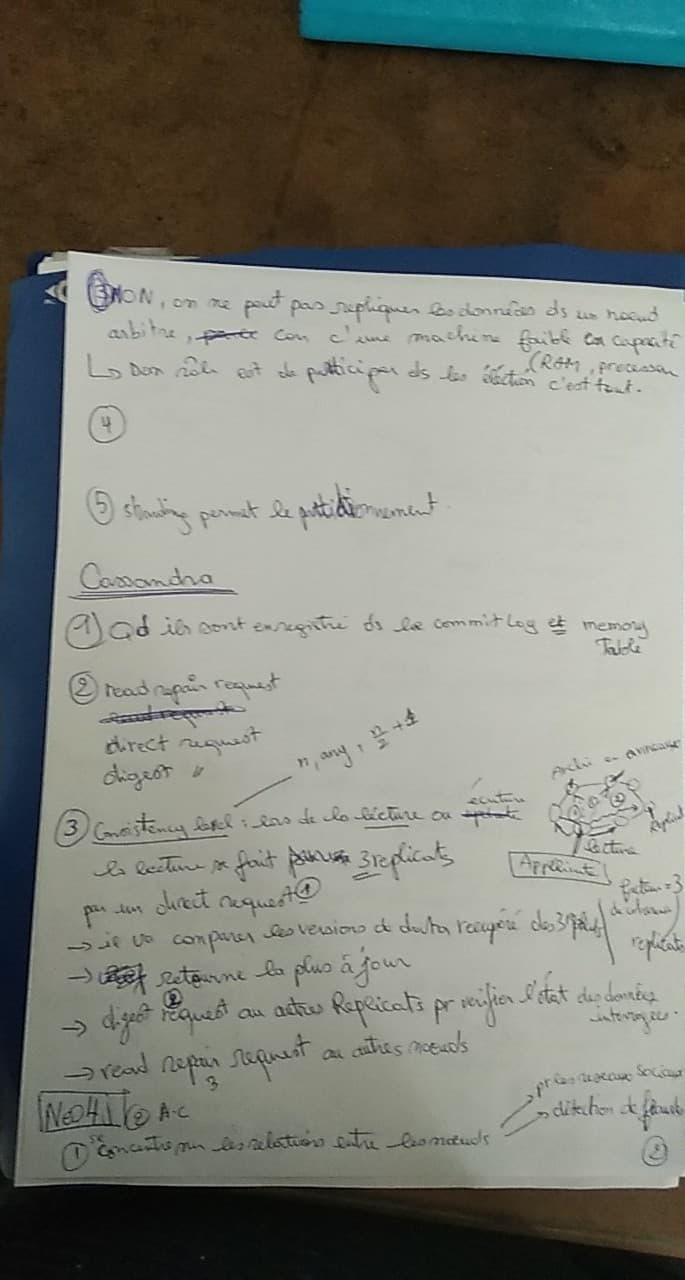 ③ NON, on ne peut pas repliquer les données ds un noeud
arbitre, car c'une machine faible en capacité
(RAM, processeur
↳ Son rôle est de participer ds les éléction c'est tout.
④
⑤ sharding permet le partitionnement.
Cassandra
① Qd ils sont enregistré ds le commit Log et memory
Table
② read repair request
direct request
digest "
n, any, n/2 + 1
③ Consistency level : lors de la lecture ou écriture
la lecture se fait 3 replicats
par un direct request ①
→ il va comparer les versions de data récupéré des 3
→ retourne la plus à jour
→ digest request ② au autres Replicats pr verifier l'état des données
interrogées.
→ read repair request au autres noeuds
3
en anneau
lecture
Client
facteur = 3
replicats
NEO4J ② A-C
① se concentre sur les relations entre les noeuds
→ pr les reseaux sociaux
→ détection de fraude
②